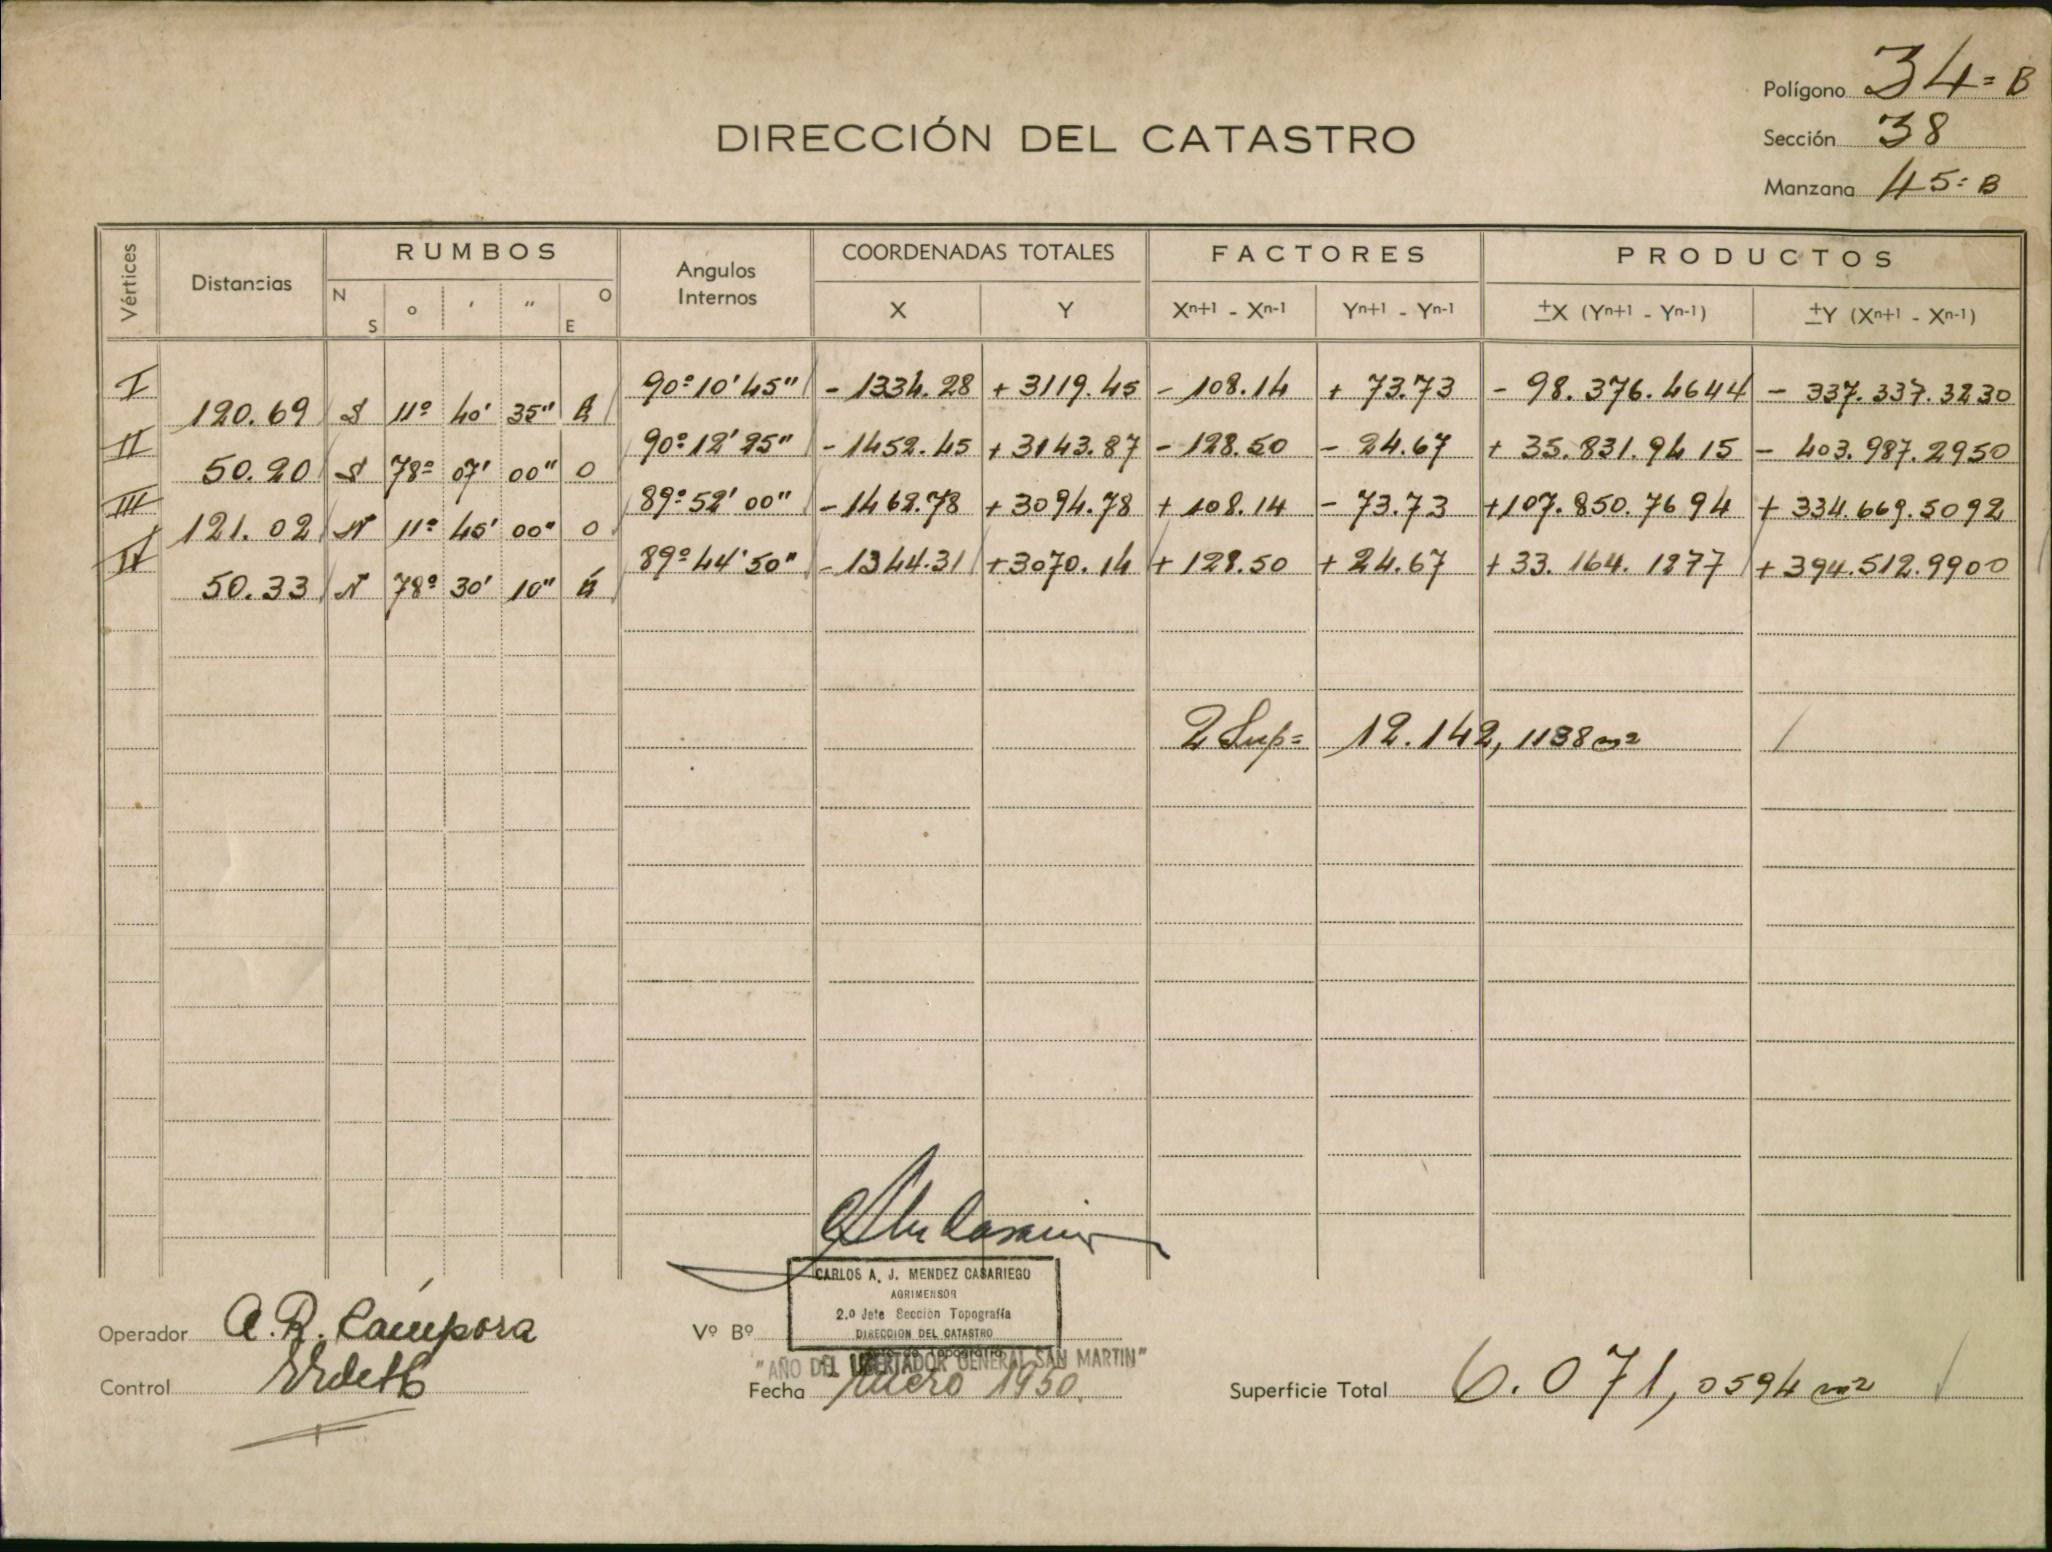 Polígono 34=B
Sección 38
Manzana 45=B
DIRECCIÓN DEL CATASTRO
Vértices Distancias RUMBOS Angulos Internos COORDENADAS TOTALES FACTORES PRODUCTOS
N S ° ' " O E X Y Xn+1 - Xn-1 Yn+1 - Yn-1 ±X (Yn+1 - Yn-1) ±Y (Xn+1 - Xn-1)
I 90°10'45" - 1334.28 + 3119.45 - 108.14 + 73.73 - 98.376.4644 - 337.337.3230
120.69 S 11° 40' 35" E
II 90°12'25" - 1452.45 + 3143.87 - 128.50 - 24.67 + 35.831.9415 - 403.987.2950
50.20 S 78° 07' 00" O
III 89°52'00" - 1462.78 + 3094.78 + 108.14 - 73.73 + 107.850.7694 + 334.669.5092
121.02 N 11° 45' 00" O
IV 89°44'50" - 1344.31 + 3070.14 + 128.50 + 24.67 + 33.164.1277 + 394.512.9900
50.33 N 78° 30' 10" E
2 Sup= 12.142,1188 m2
CARLOS A. J. MENDEZ CASARIEGO
AGRIMENSOR
2.º Jefe Sección Topografía
DIRECCION DEL CATASTRO
Operador A. R. Cámpora
Vº Bº
"AÑO DEL LIBERTADOR GENERAL SAN MARTIN"
Control
Fecha Enero 1950.
Superficie Total 6.071,0594 m2